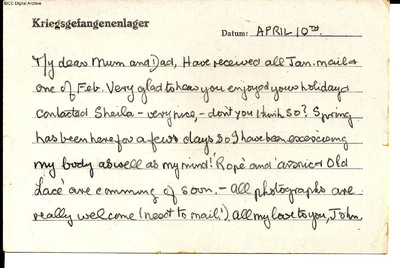 IBCC Digital Archive
Kriegsgefangenenlager
Datum: APRIL 10TH.
My dear Mum and Dad, Have received all Jan. mail &
one of Feb. Very glad to hear you enjoyed your holiday &
contacted Sheila - very nice, - don't you think so? Spring
has been here for a few days so I have been exercising
my body as well as my mind! 'Rope' and 'Arsnic & Old
Lace' are comming of soon. - All photographs are
really welcome (next to mail!). All my love to you, John.